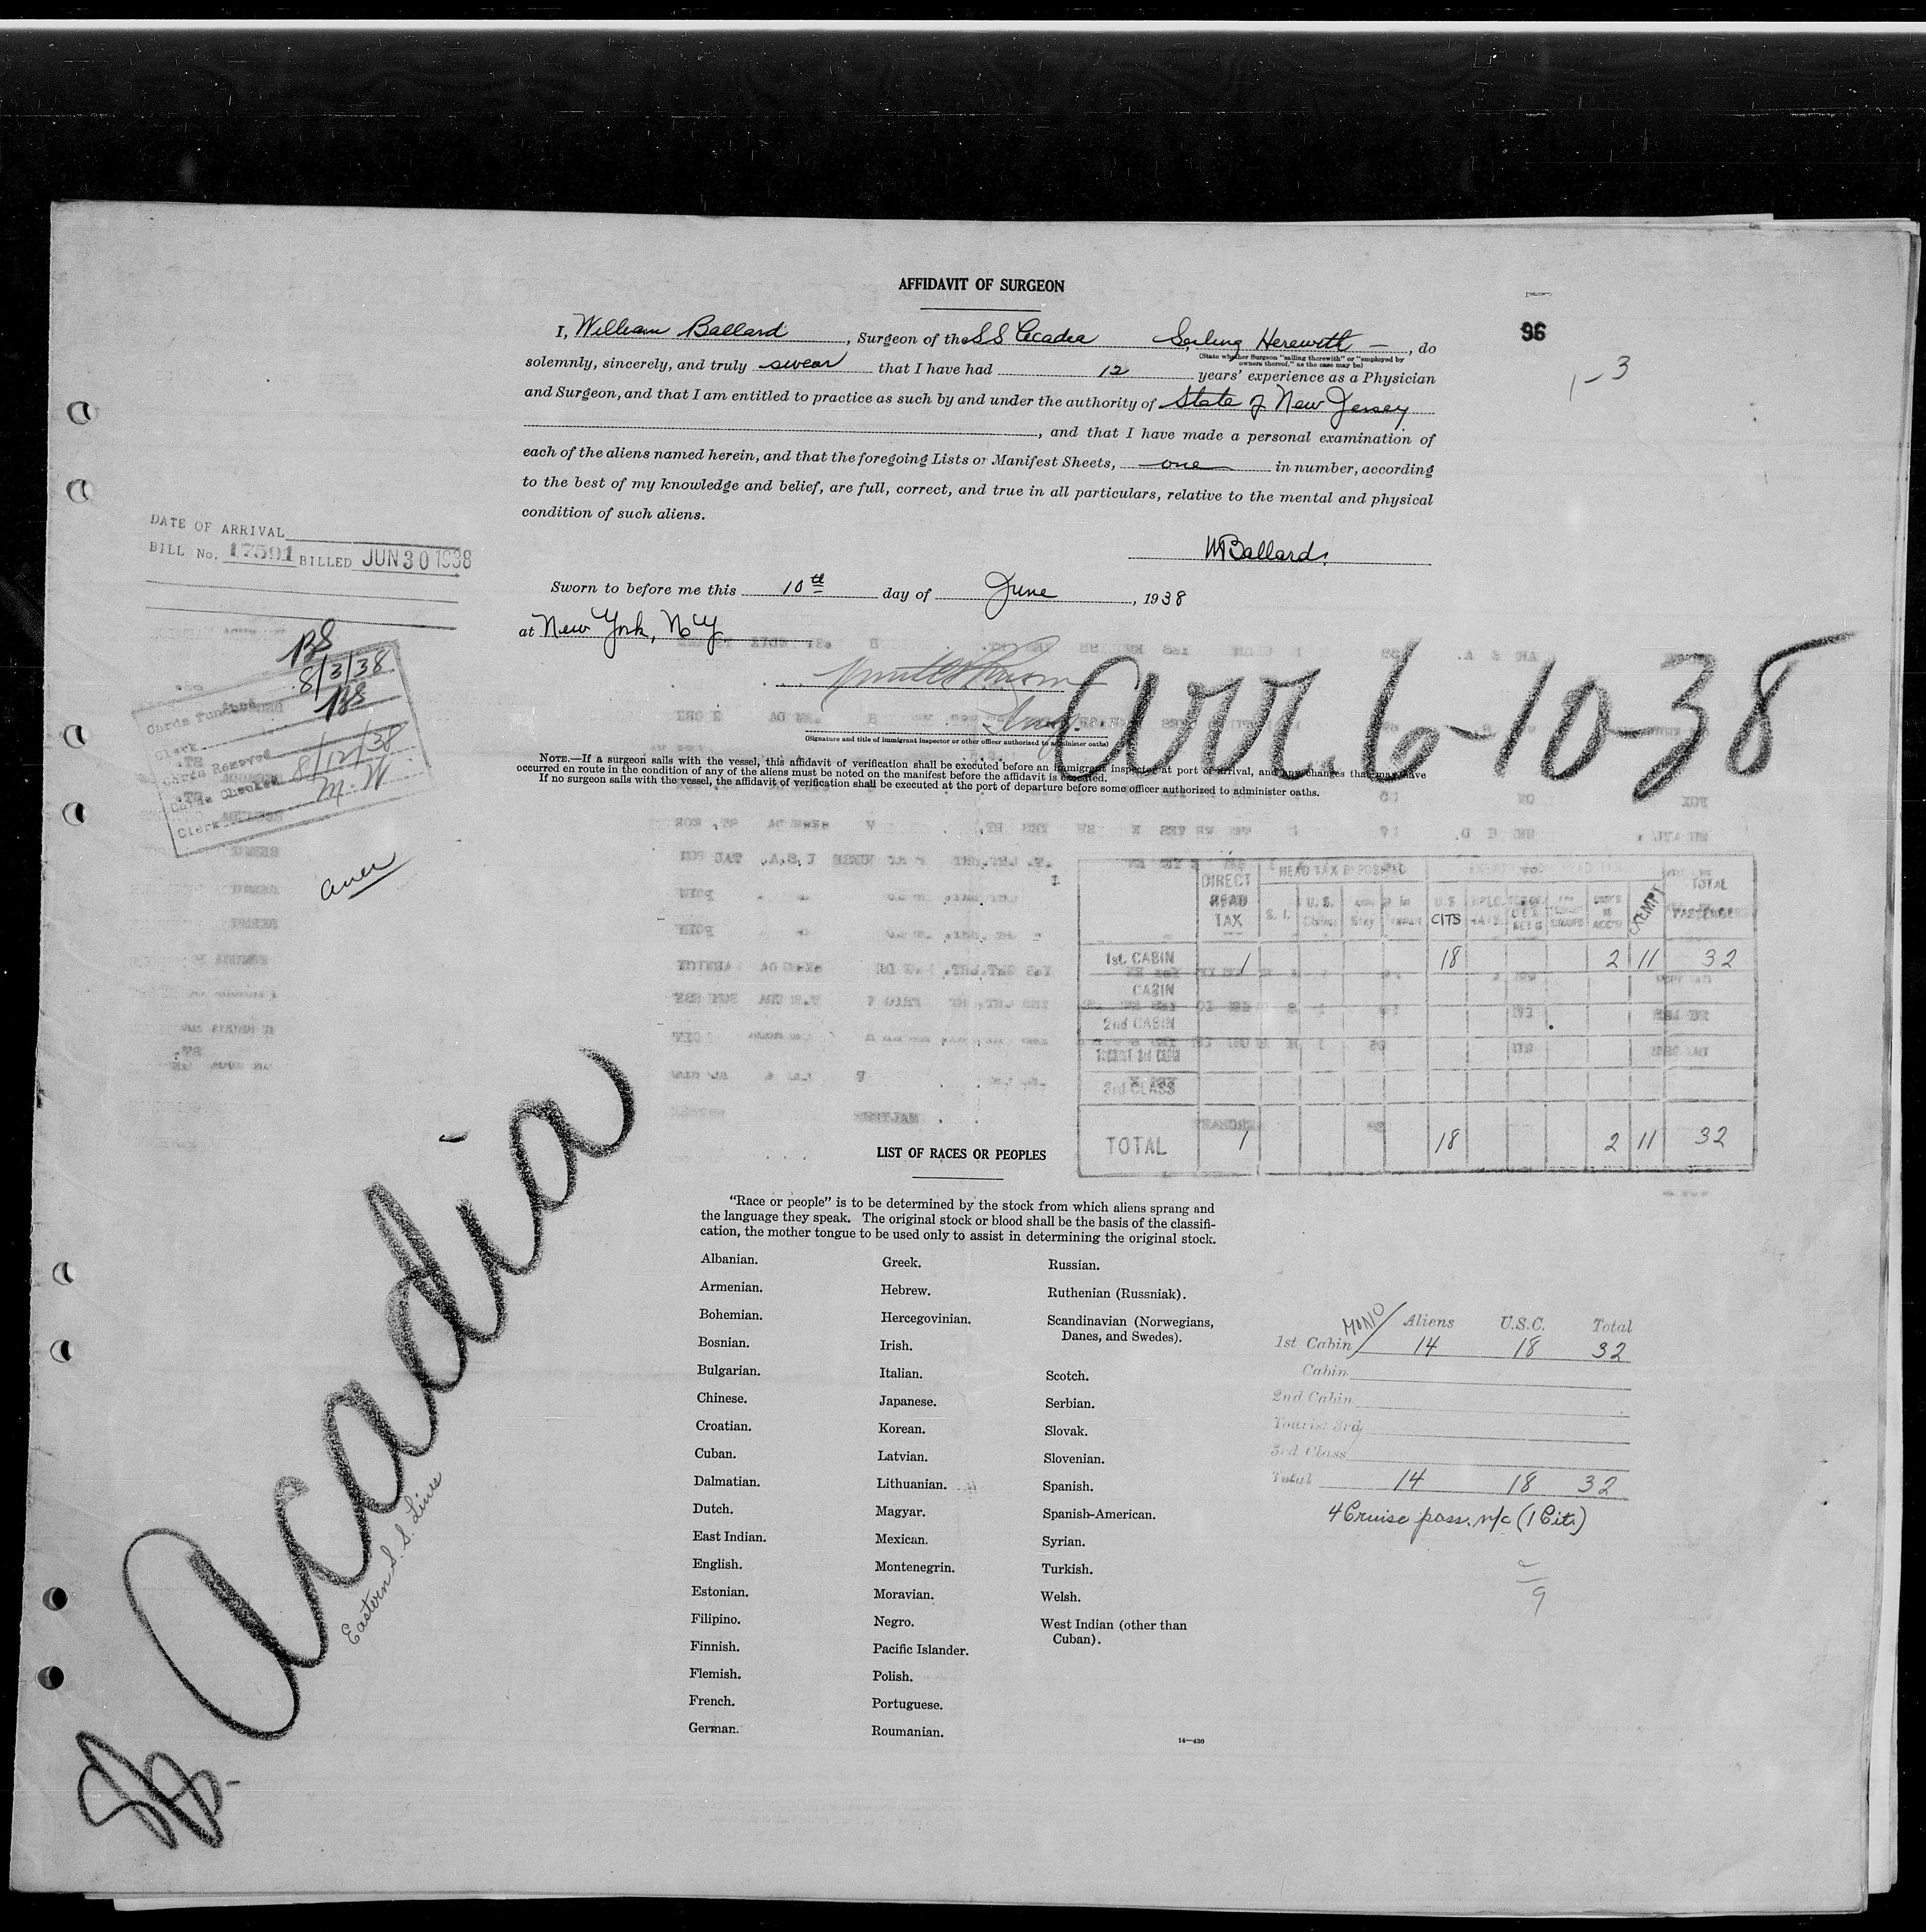 AFFIDAVIT OF SURGEON
96
1-3
I, William Ballard, Surgeon of the SS Acadia Sailing Herewith —, do
(State whether Surgeon "sailing therewith" or "employed by
owners thereof," as the case may be)
solemnly, sincerely, and truly swear that I have had 12 years' experience as a Physician
and Surgeon, and that I am entitled to practice as such by and under the authority of State of New Jersey
, and that I have made a personal examination of
each of the aliens named herein, and that the foregoing Lists or Manifest Sheets, one in number, according
to the best of my knowledge and belief, are full, correct, and true in all particulars, relative to the mental and physical
condition of such aliens.
WBallard.
DATE OF ARRIVAL
BILL No. 17591 BILLED JUN 30 1938
Sworn to before me this 10th day of June, 1938
at New York, N.Y.
(Signature and title of immigrant inspector or other officer authorized to administer oaths)
arr. 6-10-38
NOTE.—If a surgeon sails with the vessel, this affidavit of verification shall be executed before an immigrant inspector at port of arrival, and any changes that may have
occurred en route in the condition of any of the aliens must be noted on the manifest before the affidavit is executed.
If no surgeon sails with the vessel, the affidavit of verification shall be executed at the port of departure before some officer authorized to administer oaths.
8/3/38
Cards Punched
Clerk
Cards Removed
8/12/38
Cards Checked
M.W.
Clerk
DIRECT HEAD TAX
HEAD TAX DEPOSITED
S. I.
U.S. CITS
EXEMPT
TOTAL PASSENGERS
1st. CABIN 1 18 2 11 32
CABIN
2nd CABIN
TOURIST 3rd CABIN
3rd CLASS
TOTAL 1 18 2 11 32
SS. Acadia
Eastern S. S. Lines
LIST OF RACES OR PEOPLES
"Race or people" is to be determined by the stock from which aliens sprang and
the language they speak. The original stock or blood shall be the basis of the classifi-
cation, the mother tongue to be used only to assist in determining the original stock.
Albanian.
Armenian.
Bohemian.
Bosnian.
Bulgarian.
Chinese.
Croatian.
Cuban.
Dalmatian.
Dutch.
East Indian.
English.
Estonian.
Filipino.
Finnish.
Flemish.
French.
German.
Greek.
Hebrew.
Hercegovinian.
Irish.
Italian.
Japanese.
Korean.
Latvian.
Lithuanian.
Magyar.
Mexican.
Montenegrin.
Moravian.
Negro.
Pacific Islander.
Polish.
Portuguese.
Roumanian.
Russian.
Ruthenian (Russniak).
Scandinavian (Norwegians,
Danes, and Swedes).
Scotch.
Serbian.
Slovak.
Slovenian.
Spanish.
Spanish-American.
Syrian.
Turkish.
Welsh.
West Indian (other than
Cuban).
14—430
MONO Aliens U.S.C. Total
1st Cabin 14 18 32
Cabin
2nd Cabin
Tourist 3rd
3rd Class
Total 14 18 32
4 Cruise pass. n/c (1 Cit.)
9